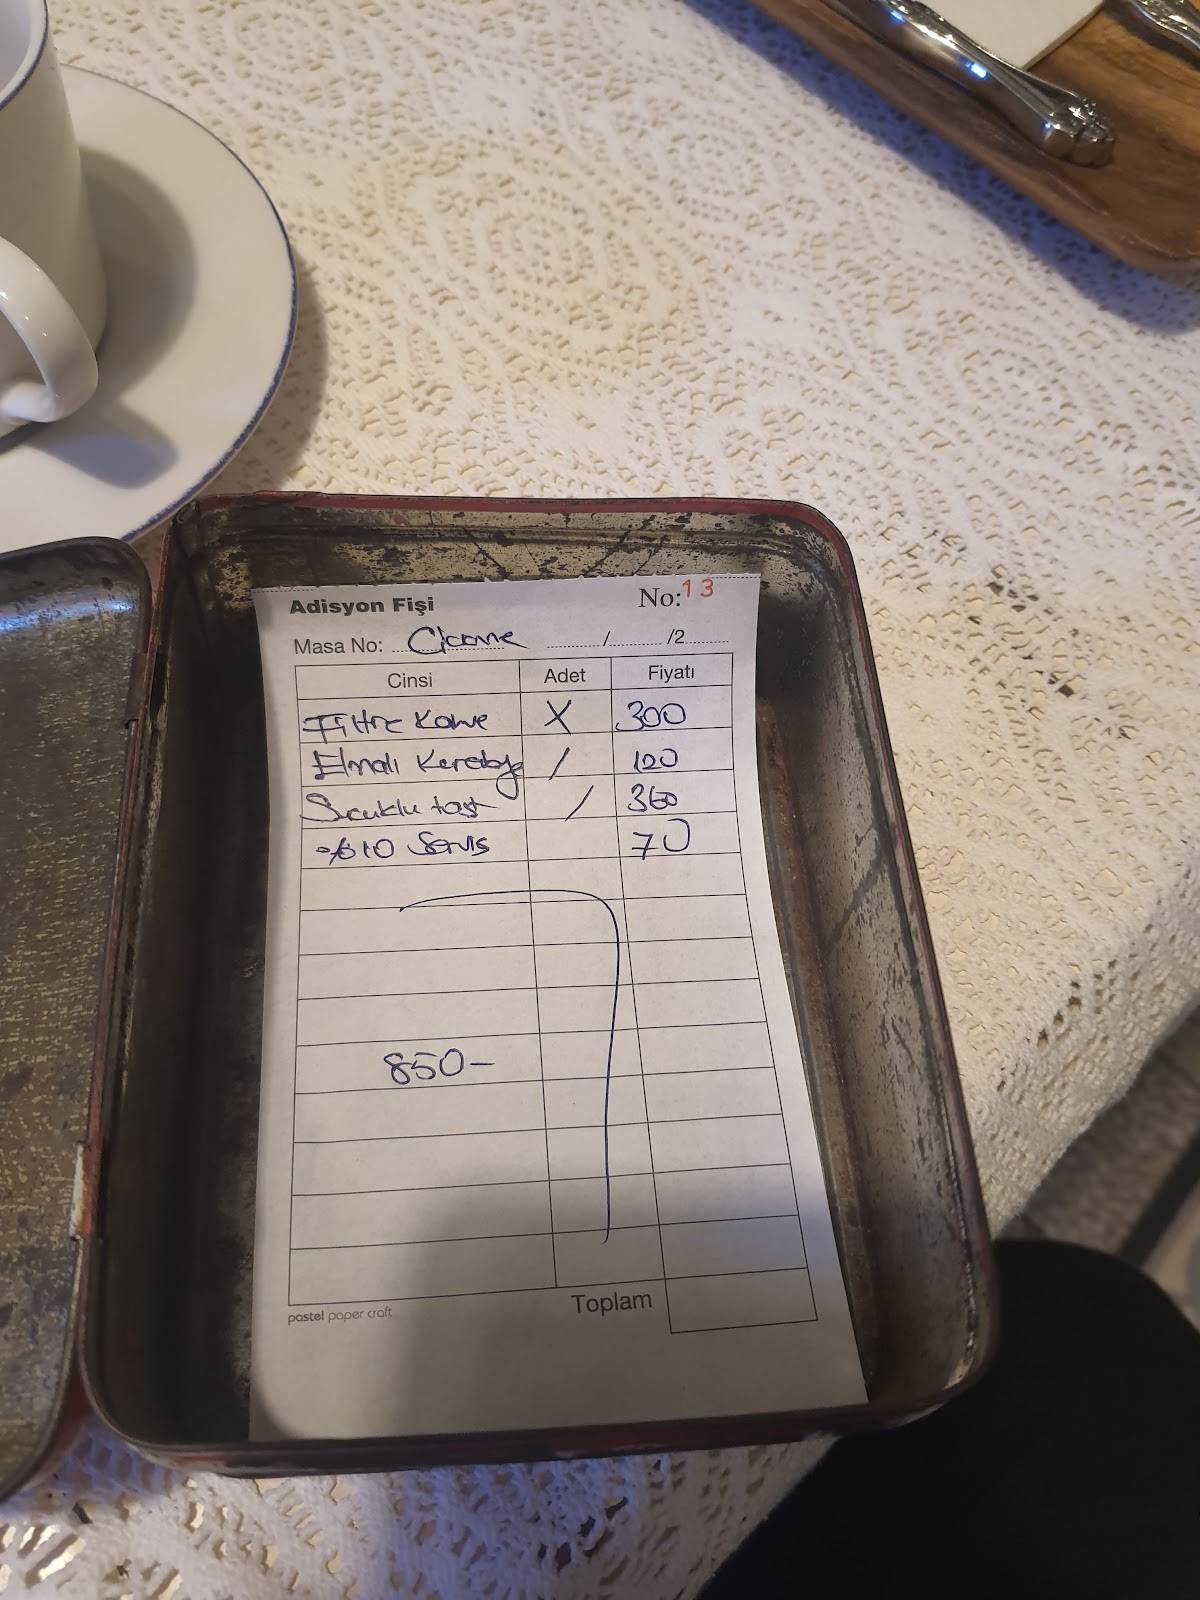 Adisyon Fişi No: 13
Masa No: ......../........./2.........
Cinsi Adet Fiyatı
Filtre Kahve X 300
Elmalı Kurabiye / 120
Sucuklu tost / 360
%10 Servis 70
850-
Toplam
pastel paper craft